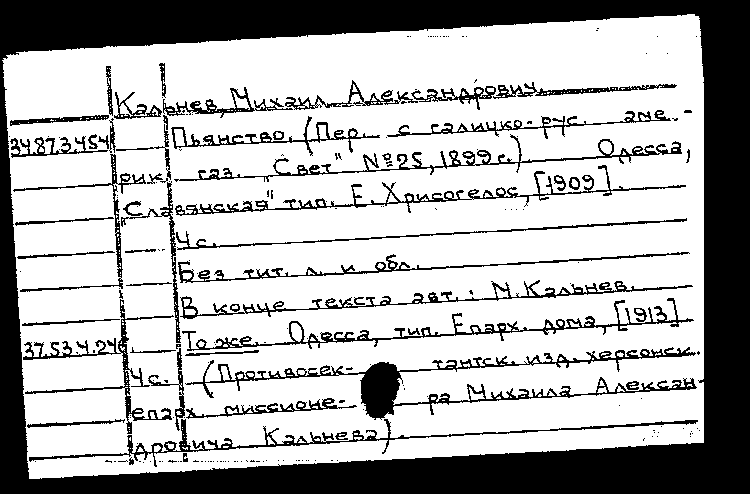 Кальнев, Михаил Александрович.
34.87.3.454 Пьянство. (Пер. с галицко-рус. аме-
рик. газ. "Свет" №25, 1899 г.) Одесса,
"Славянская" тип. Е. Хрисогелос, [1909].
4 с.
Без тит. л. и обл.
В конце текста авт.: М. Кальнев.
37.53.4.246. То же. Одесса, тип. Епарх. дома, [1913].
4 с. (Противосек- тантск. изд. херсонск.
епарх. миссионе- ра Михаила Алексан-
дровича Кальнева).